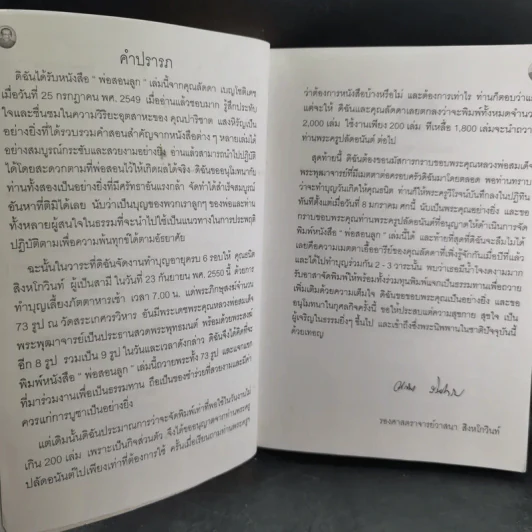 คำปรารภ
ดิฉันได้รับหนังสือ " พ่อสอนลูก " เล่มนี้จากคุณลัดดา เบญโชติเดช
เมื่อวันที่ 25 กรกฎาคม พศ. 2549 เมื่ออ่านแล้วชอบมาก รู้สึกประทับ
ใจและชื่นชมในความวิริยะอุตสาหะของ คุณปาริชาต แสงหิรัญเป็น
อย่างยิ่งที่ได้รวบรวมคำสอนสำคัญจากหนังสือต่าง ๆ หลายเล่มได้
อย่างสมบูรณ์กระชับและสวยงามอย่างยิ่ง อ่านแล้วสามารถนำไปปฏิบัติ
ได้โดยสะดวกตามที่พ่อสอนไว้ให้เกิดผลได้จริง ดิฉันขออนุโมทนากับ
ท่านทั้งสองเป็นอย่างยิ่งที่มีศรัทธาอันแรงกล้า จัดทำได้สำเร็จสมบูรณ์
อันหาที่ติมิได้เลย นับว่าเป็นบุญของพวกเราลูกๆ ของพ่อและท่าน
ทั้งหลายผู้สนใจในธรรมที่จะนำไปใช้เป็นแนวทางในการประพฤติ
ปฏิบัติตามเพื่อความพ้นทุกข์ได้ตามอัธยาศัย
ฉะนั้นในวาระที่ดิฉันจัดงานทำบุญอายุครบ 6 รอบให้ คุณธนิต
สิงหโกวินท์ ผู้เป็นสามี ในวันที่ 23 กันยายน พศ. 2550 นี้ ด้วยการ
ทำบุญเลี้ยงภัตตาหารเช้า เวลา 7.00 น. แด่พระภิกษุสงฆ์จำนวน
73 รูป ณ วัดสระเกศวรวิหาร อันมีพระเดชพระคุณหลวงพ่อสมเด็จ
พระพุฒาจารย์เป็นประธานสวดพระพุทธมนต์ พร้อมด้วยพระสงฆ์
อีก 8 รูป รวมเป็น 9 รูป ในวันและเวลาดังกล่าว ดิฉันจึงได้คิดที่จะ
พิมพ์หนังสือ " พ่อสอนลูก " เล่มนี้ถวายพระทั้ง 73 รูป และแจกแขก
ที่มาร่วมงานเพื่อเป็นธรรมทาน ถือเป็นของชำร่วยที่สวยงามและมีค่า
ควรแก่การบูชาเป็นอย่างยิ่ง
แต่เดิมนั้นดิฉันประมาณการว่าจะจัดพิมพ์เท่าที่พอใช้ในวันงานไม่
เกิน 200 เล่ม เพราะเป็นกิจส่วนตัว จึงได้ขออนุญาตจากท่านพระครู
ปลัดอนันต์ไปเพียงเท่าที่ต้องการใช้ ครั้นเมื่อเรียนถามท่านพระครูฯ
ว่าต้องการหนังสือบ้างหรือไม่ และต้องการเท่าไร ท่านก็ตอบว่าแล้ว
แต่จะให้ ดิฉันและคุณลัดดาเลยตกลงว่าจะพิมพ์ทั้งหมดจำนวน
2,000 เล่ม ใช้งานเพียง 200 เล่ม ที่เหลือ 1,800 เล่มจะนำถวาย
ท่านพระครูปลัดอนันต์ ต่อไป
สุดท้ายนี้ ดิฉันต้องขอนมัสการกราบขอบพระคุณหลวงพ่อสมเด็จ
พระพุฒาจารย์ที่มีเมตตาต่อครอบครัวดิฉันมาโดยตลอด พอท่านทราบ
ว่าจะทำบุญวันเกิดให้คุณธนิต ท่านก็ให้พระครูวิโรจน์บันทึกลงในปฏิทิน
ทันทีตั้งแต่เมื่อวันที่ 8 มกราคม ศกนี้ นับเป็นพระคุณอย่างยิ่ง และขอ
กราบขอบพระคุณท่านพระครูปลัดอนันต์ที่อนุญาตให้ดำเนินการจัด
พิมพ์หนังสือ " พ่อสอนลูก " เล่มนี้ได้ และท้ายที่สุดที่ดิฉันจะลืมไม่ได้
เลยคือความเมตตาเอื้ออารีย์ของคุณลัดดาที่เพิ่งรู้จักกันเมื่อปีที่แล้ว
และได้ไปทำบุญร่วมกัน 2 - 3 วาระนั้น พบว่าเธอมีน้ำใจงดงามมาก
รับอาสาจัดพิมพ์ให้พร้อมทั้งร่วมทุนพิมพ์แจกเป็นธรรมทานเพื่อถวาย
เพิ่มเติมด้วยความเต็มใจ ดิฉันขอขอบพระคุณเป็นอย่างยิ่ง และขอ
อนุโมทนาในกุศลกิจครั้งนี้ ขอให้ประสบแต่ความสุขกาย สุขใจ เป็น
ผู้เจริญในธรรมยิ่งๆ ขึ้นไป และเข้าถึงซึ่งพระนิพพานในชาติปัจจุบันนี้
ด้วยเทอญ
รองศาสตราจารย์วาสนา สิงหโกวินท์